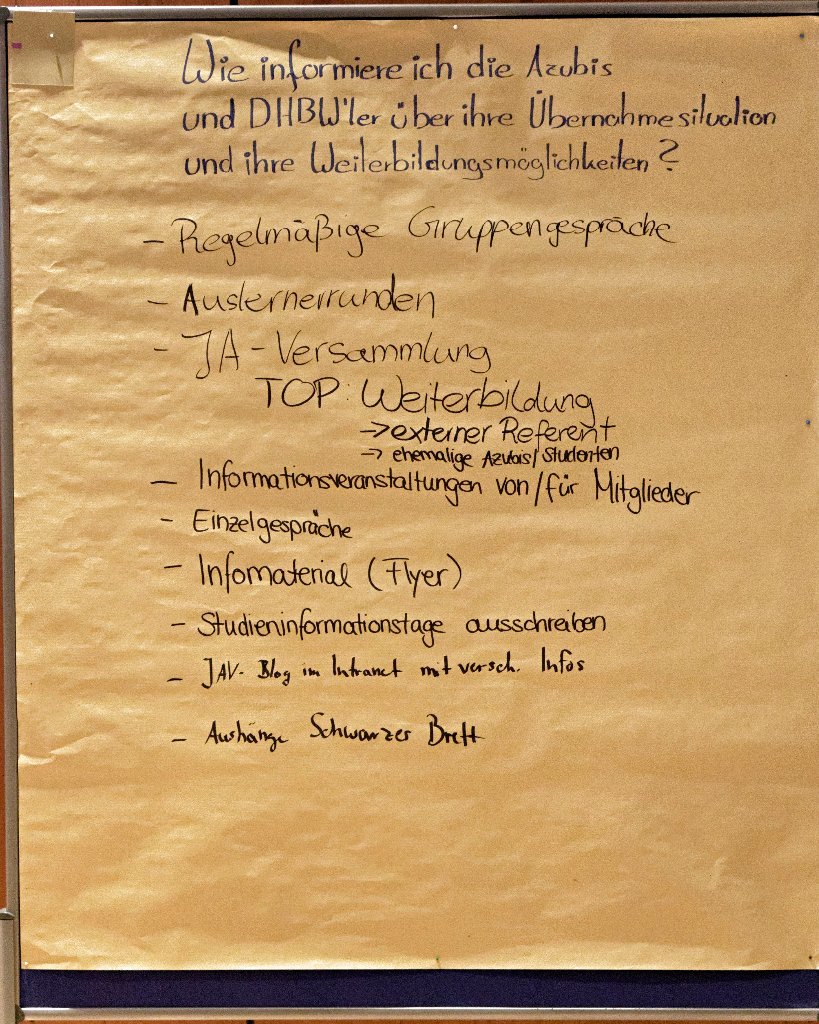 Wie informiere ich die Azubis
und DHBW'ler über ihre Übernahmesituation
und ihre Weiterbildungsmöglichkeiten?
- Regelmäßige Gruppengespräche
- Auslernerrunden
- JA - Versammlung
TOP: Weiterbildung
→ externer Referent
→ ehemalige Azubis/Studenten
- Informationsveranstaltungen von/für Mitglieder
- Einzelgespräche
- Infomaterial (Flyer)
- Studieninformationstage ausschreiben
- JAV- Blog im Intranet mit versch. Infos
- Aushänge Schwarzes Brett